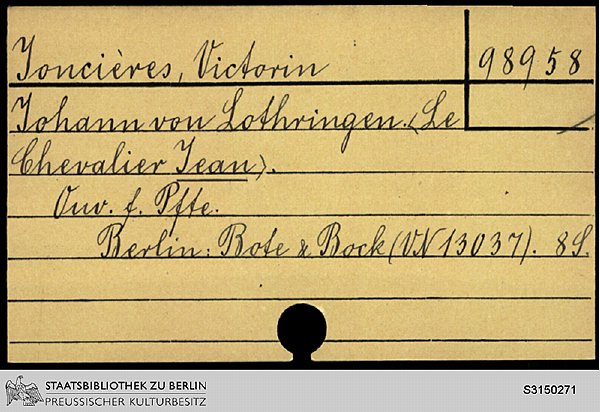 Joncières, Victorin
98958
Johann von Lothringen. (Le
Chevalier Jean).
Ouv. f. Pfte.
Berlin: Bote & Bock (VN 13037). 8 S.
STAATSBIBLIOTHEK ZU BERLIN
PREUSSISCHER KULTURBESITZ
S3150271